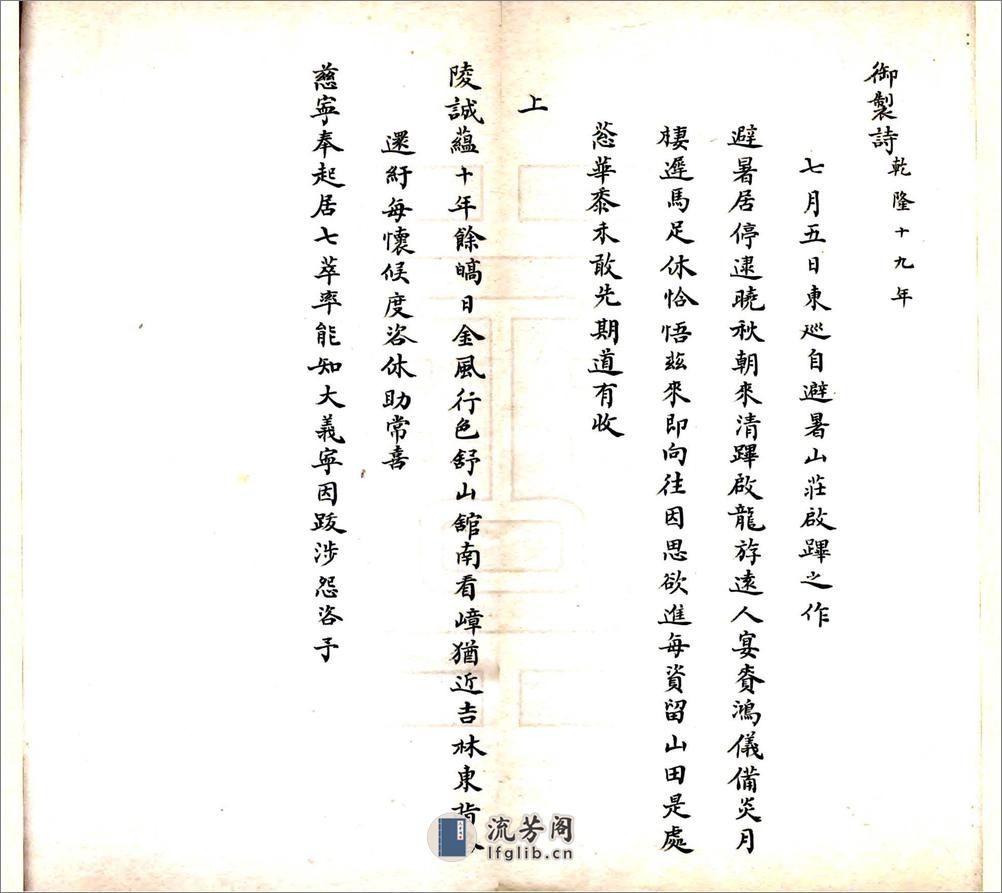 御製詩乾隆十九年
七月五日東巡自避暑山莊啟蹕之作
避暑居停逮曉秋朝來清蹕啟龍斿遠人宴賚鴻儀備炎月
棲遲馬足休恰悟茲來即向往因思欲進每資留山田是處
蓯華黍未敢先期道有收
上
陵誠蘊十年餘皜日金風行色舒山舘南看嶂猶近吉林東指
還紆每懷候度咨休助常喜
慈寧奉起居七萃率能知大義寧因跋涉怨咨予
流芳阁
lfglib.cn